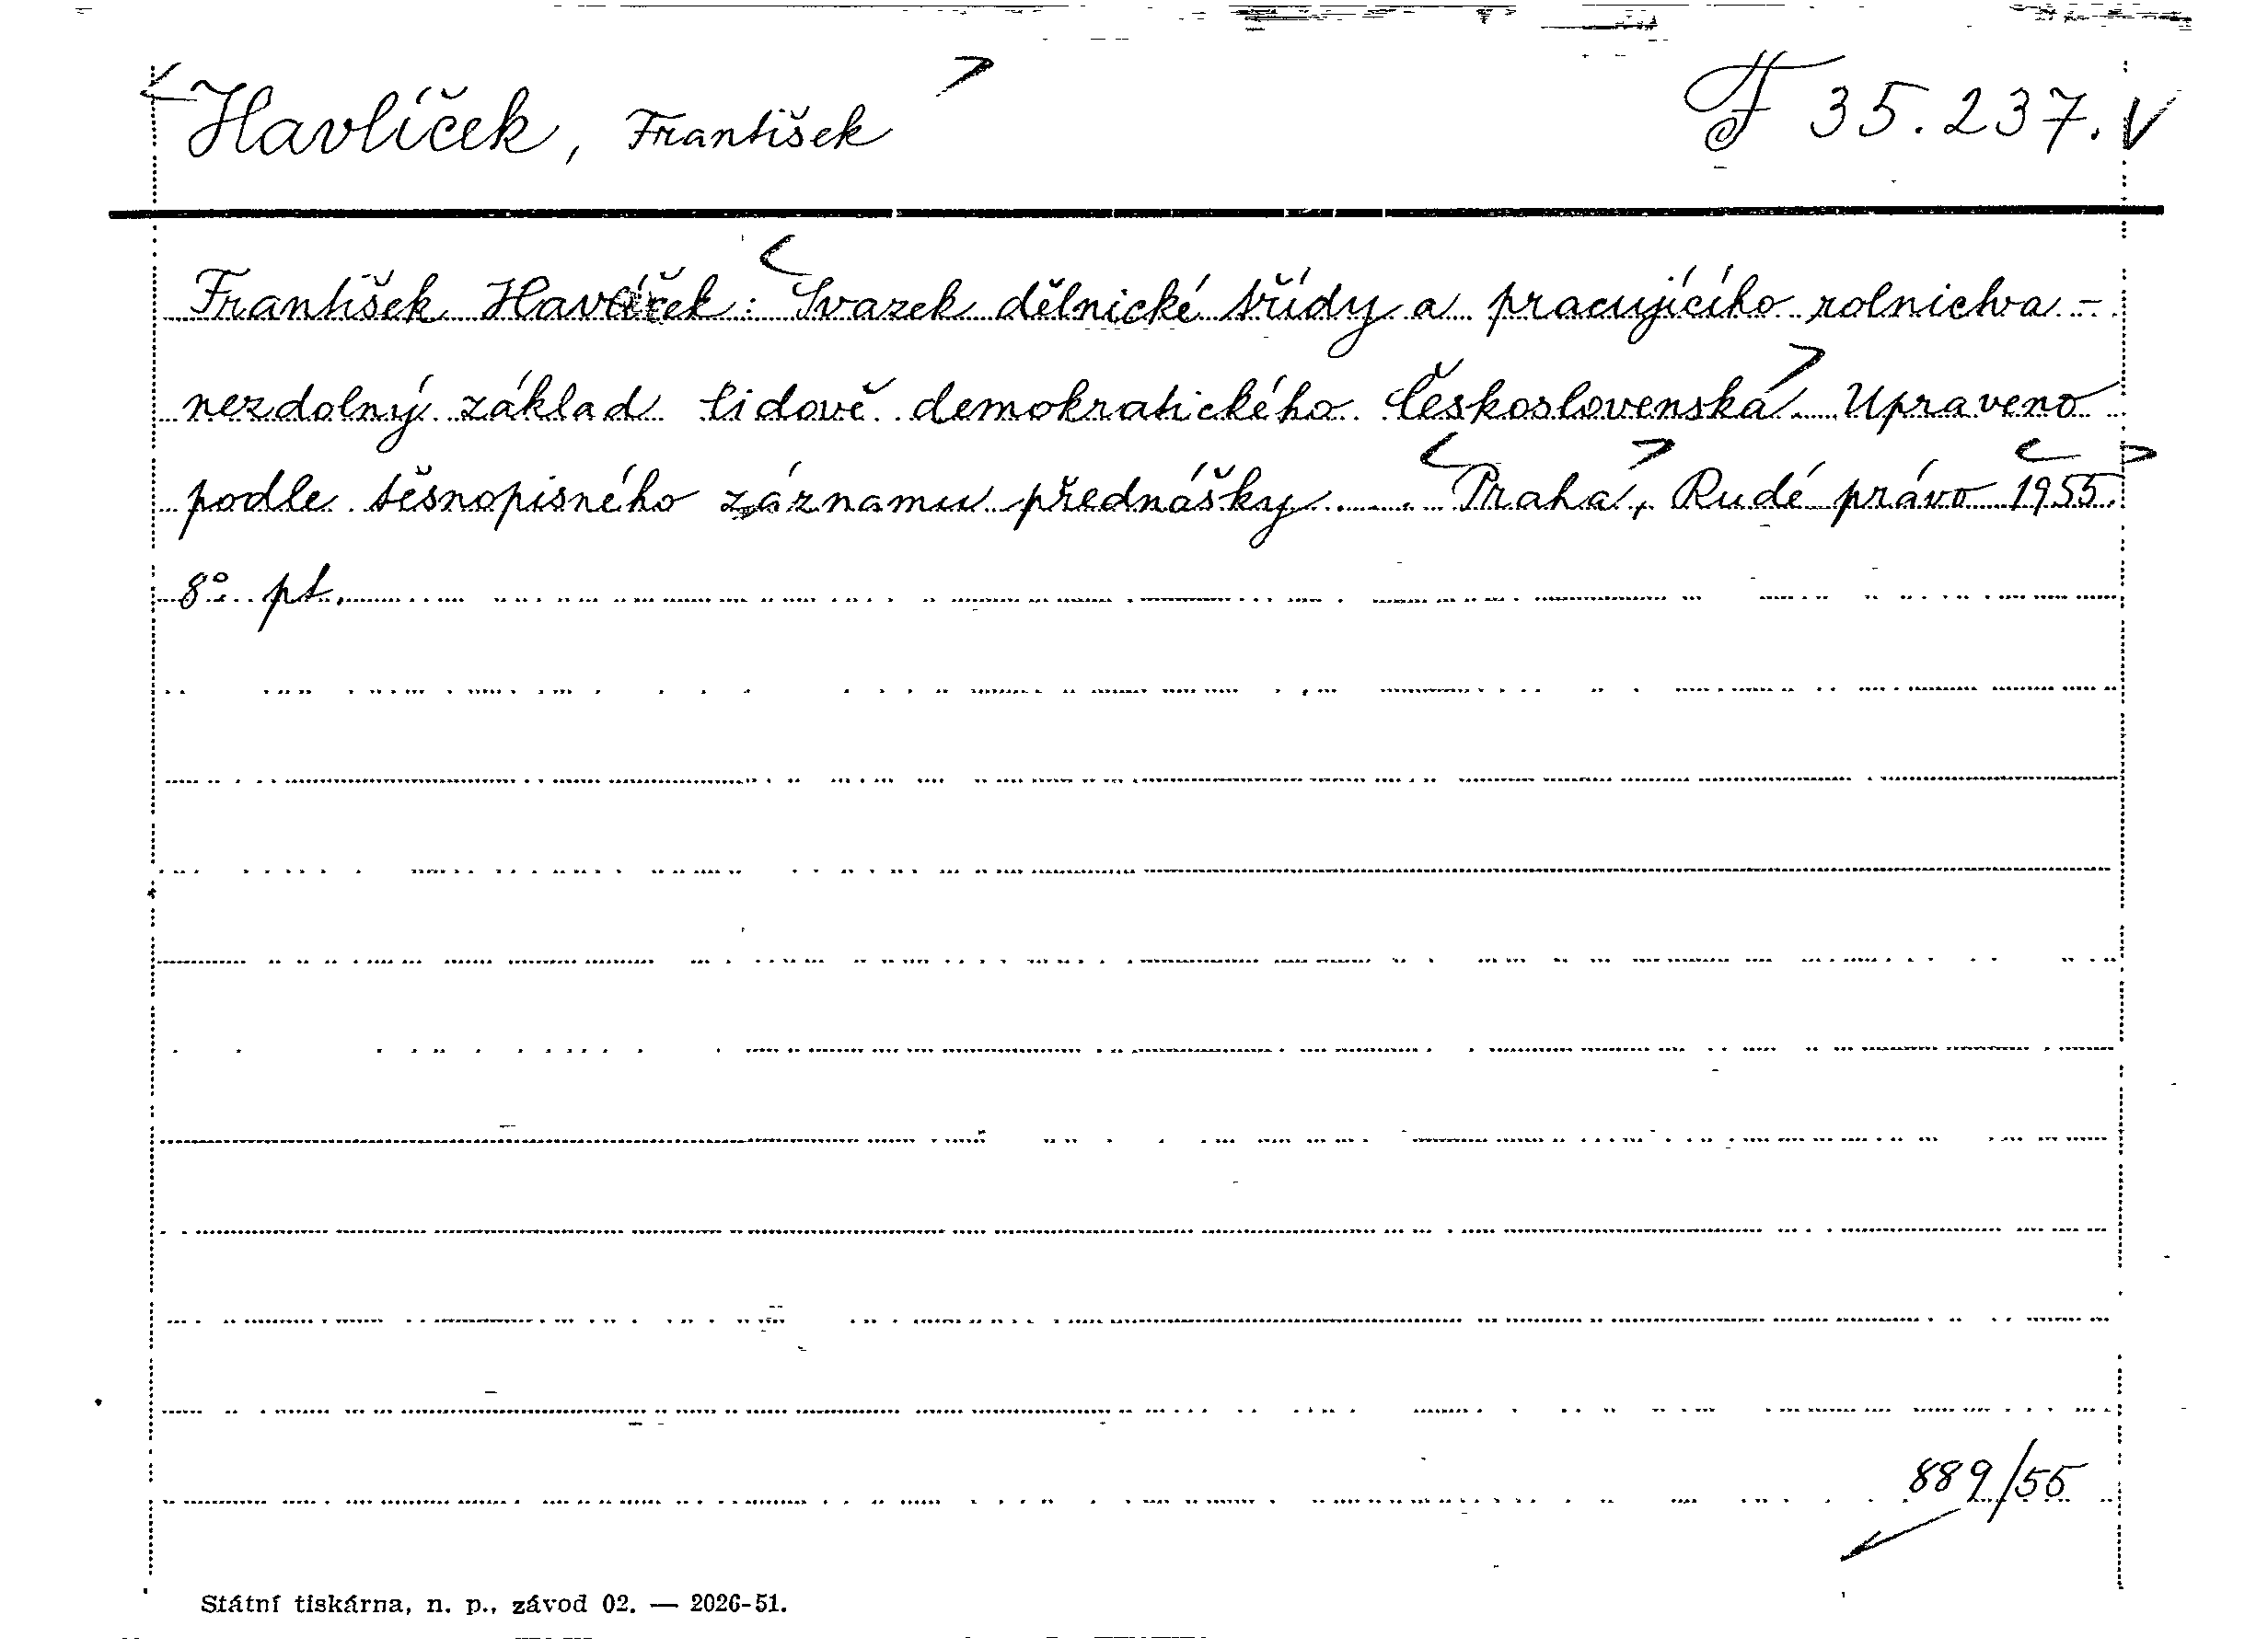 Havlíček, František F 35.237.
František Havlíček: Svazek dělnické třídy a pracujícího rolnictva -
nezdolný základ lidově demokratického Československa. Upraveno
podle těsnopisného záznamu přednášky... Praha, Rudé právo 1955.
8°. pt.
889/55
Státní tiskárna, n. p., závod 02. — 2026-51.